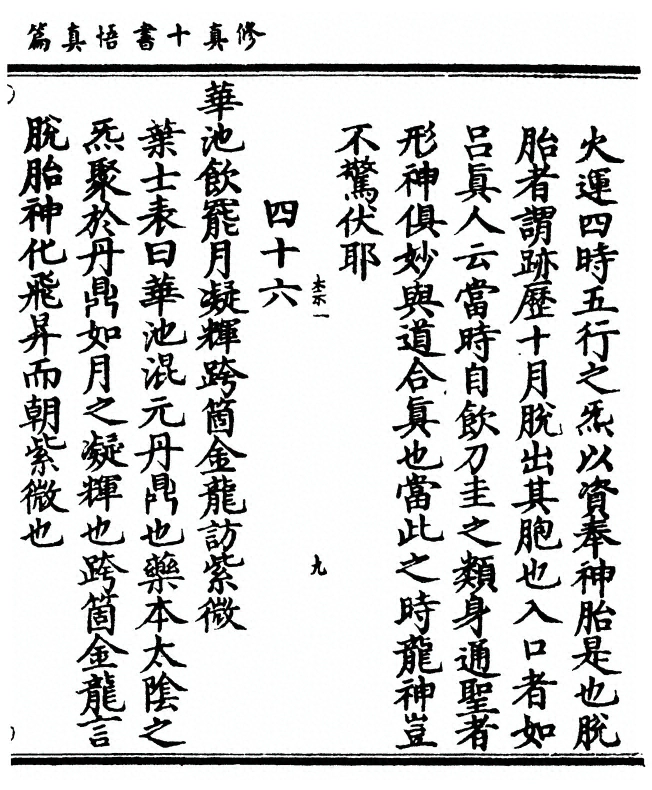 修真十書悟真篇
火運四時五行之炁以資奉神胎是也脫
胎者謂跡歷十月脫出其胞也入口者如
呂眞人云當時自飲刀圭之類身通聖者
形神俱妙與道合眞也當此之時龍神豈
不驚伏耶
九
四十六
華池飲罷月凝輝跨箇金龍訪紫微
葉士表曰華池混元丹鼎也藥本太陰之
炁聚於丹鼎如月之凝輝也跨箇金龍言
脫胎神化飛昇而朝紫微也